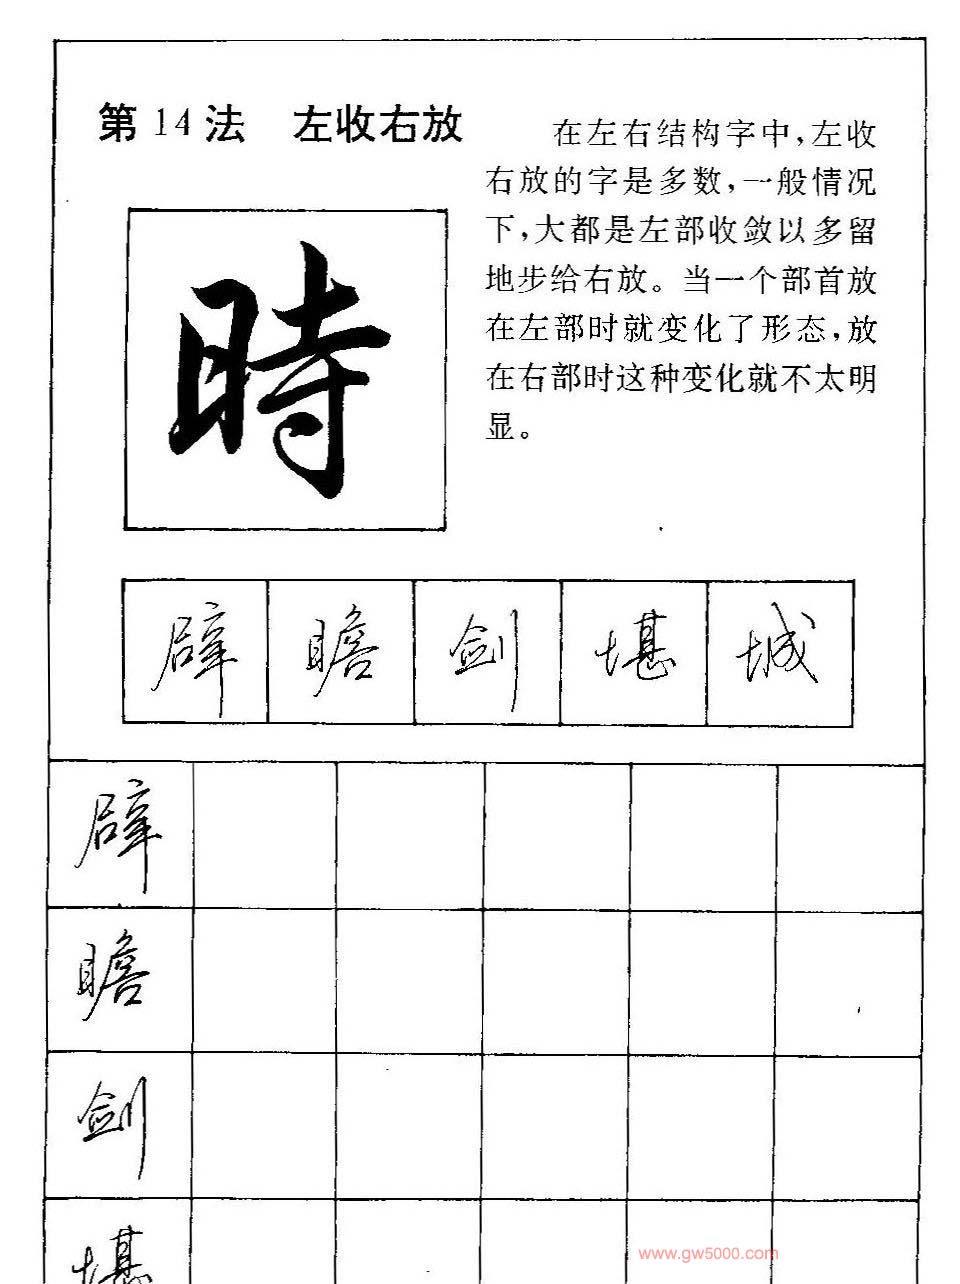 第14法 左收右放
在左右结构字中,左收
右放的字是多数,一般情况
下,大都是左部收敛以多留
地步给右放。当一个部首放
在左部时就变化了形态,放
在右部时这种变化就不太明
显。
時
辟 瞻 剑 堪 城
辟
瞻
剑
堪
www.gw5000.com